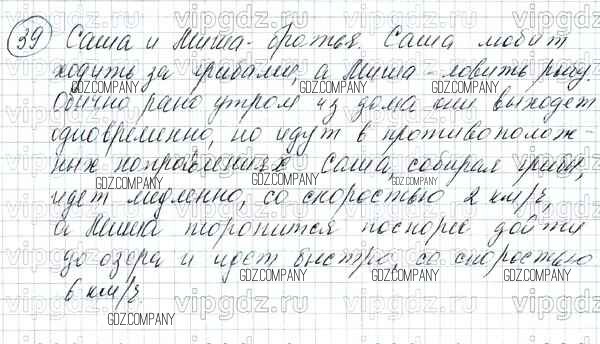 39 Саша и Миша - братья. Саша любит
ходить за грибами, а Миша - ловить рыбу.
Обычно рано утром из дома они выходет
одновременно, но идут в противополож-
ных направлениях. Саша, собирая грибы,
идет медленно, со скоростью 2 км/ч,
а Миша торопится поскорее дойти
до озера и идет быстро, со скоростью
6 км/ч.
GDZ.COMPANY
vipgdz.ru